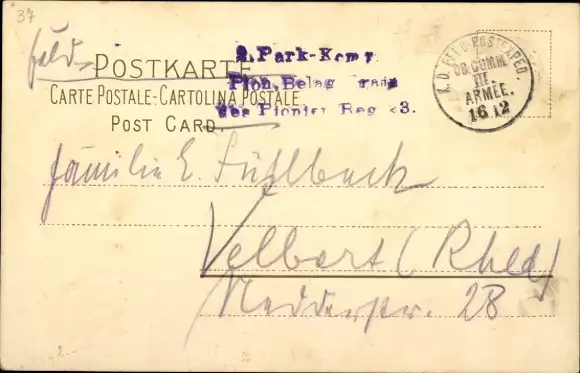 37
Feld=
POSTKARTE
CARTE POSTALE - CARTOLINA POSTALE
POST CARD.
2. Park-Komp
Pion. Belag
des Pionier Reg 23.
K. D. FELD-POSTEXPED.
III.
ARMEE.
16 12
Familie E.
Velbert (Rhld)
28
2.-